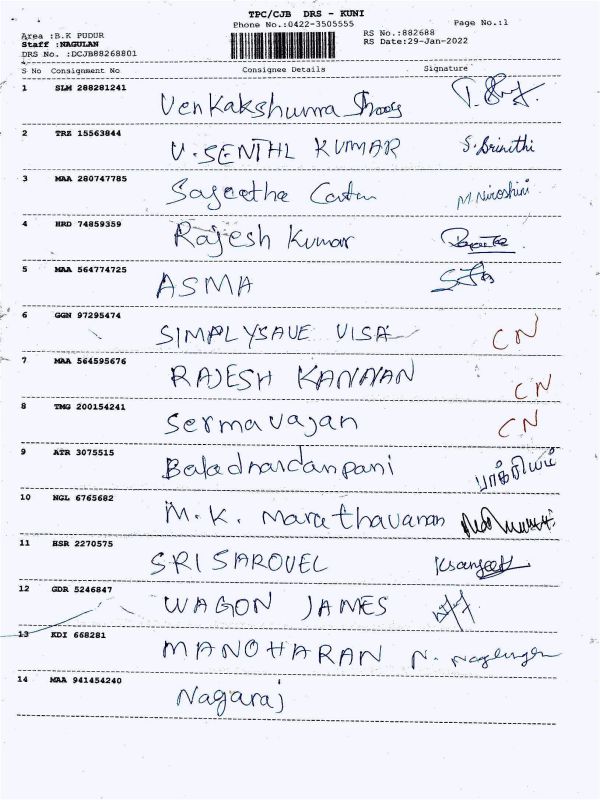 TPC/CJB DRS - KUNI
Phone No.:0422-3505555 Page No.:1
Area :B.K PUDUR RS No.:882688
Staff :NAGULAN RS Date:29-Jan-2022
DRS No. :DCJB88268801
S No Consignment No Consignee Details Signature
1 SLM 288281241
2 TRZ 15563844 V. SENTHL KUMAR S. Srinithi
3 MAA 280747785 M. Niroshini
4 HRD 74859359 Rajesh Kumar
5 MAA 564774725 ASMA
6 GGN 97295474 SIMPLYSAVE VISA CN
7 MAA 564595676 RAJESH KANNAN CN
8 TMG 200154241 Sermavajan CN
9 ATR 3075515
10 NGL 6765682 M.K. Marathavanan
11 BSR 2270575 SRI SAROVEL
12 GDR 5246847 WAGON JAMES
13 KDI 668281 MANOHARAN
14 MAA 941454240 Nagaraj